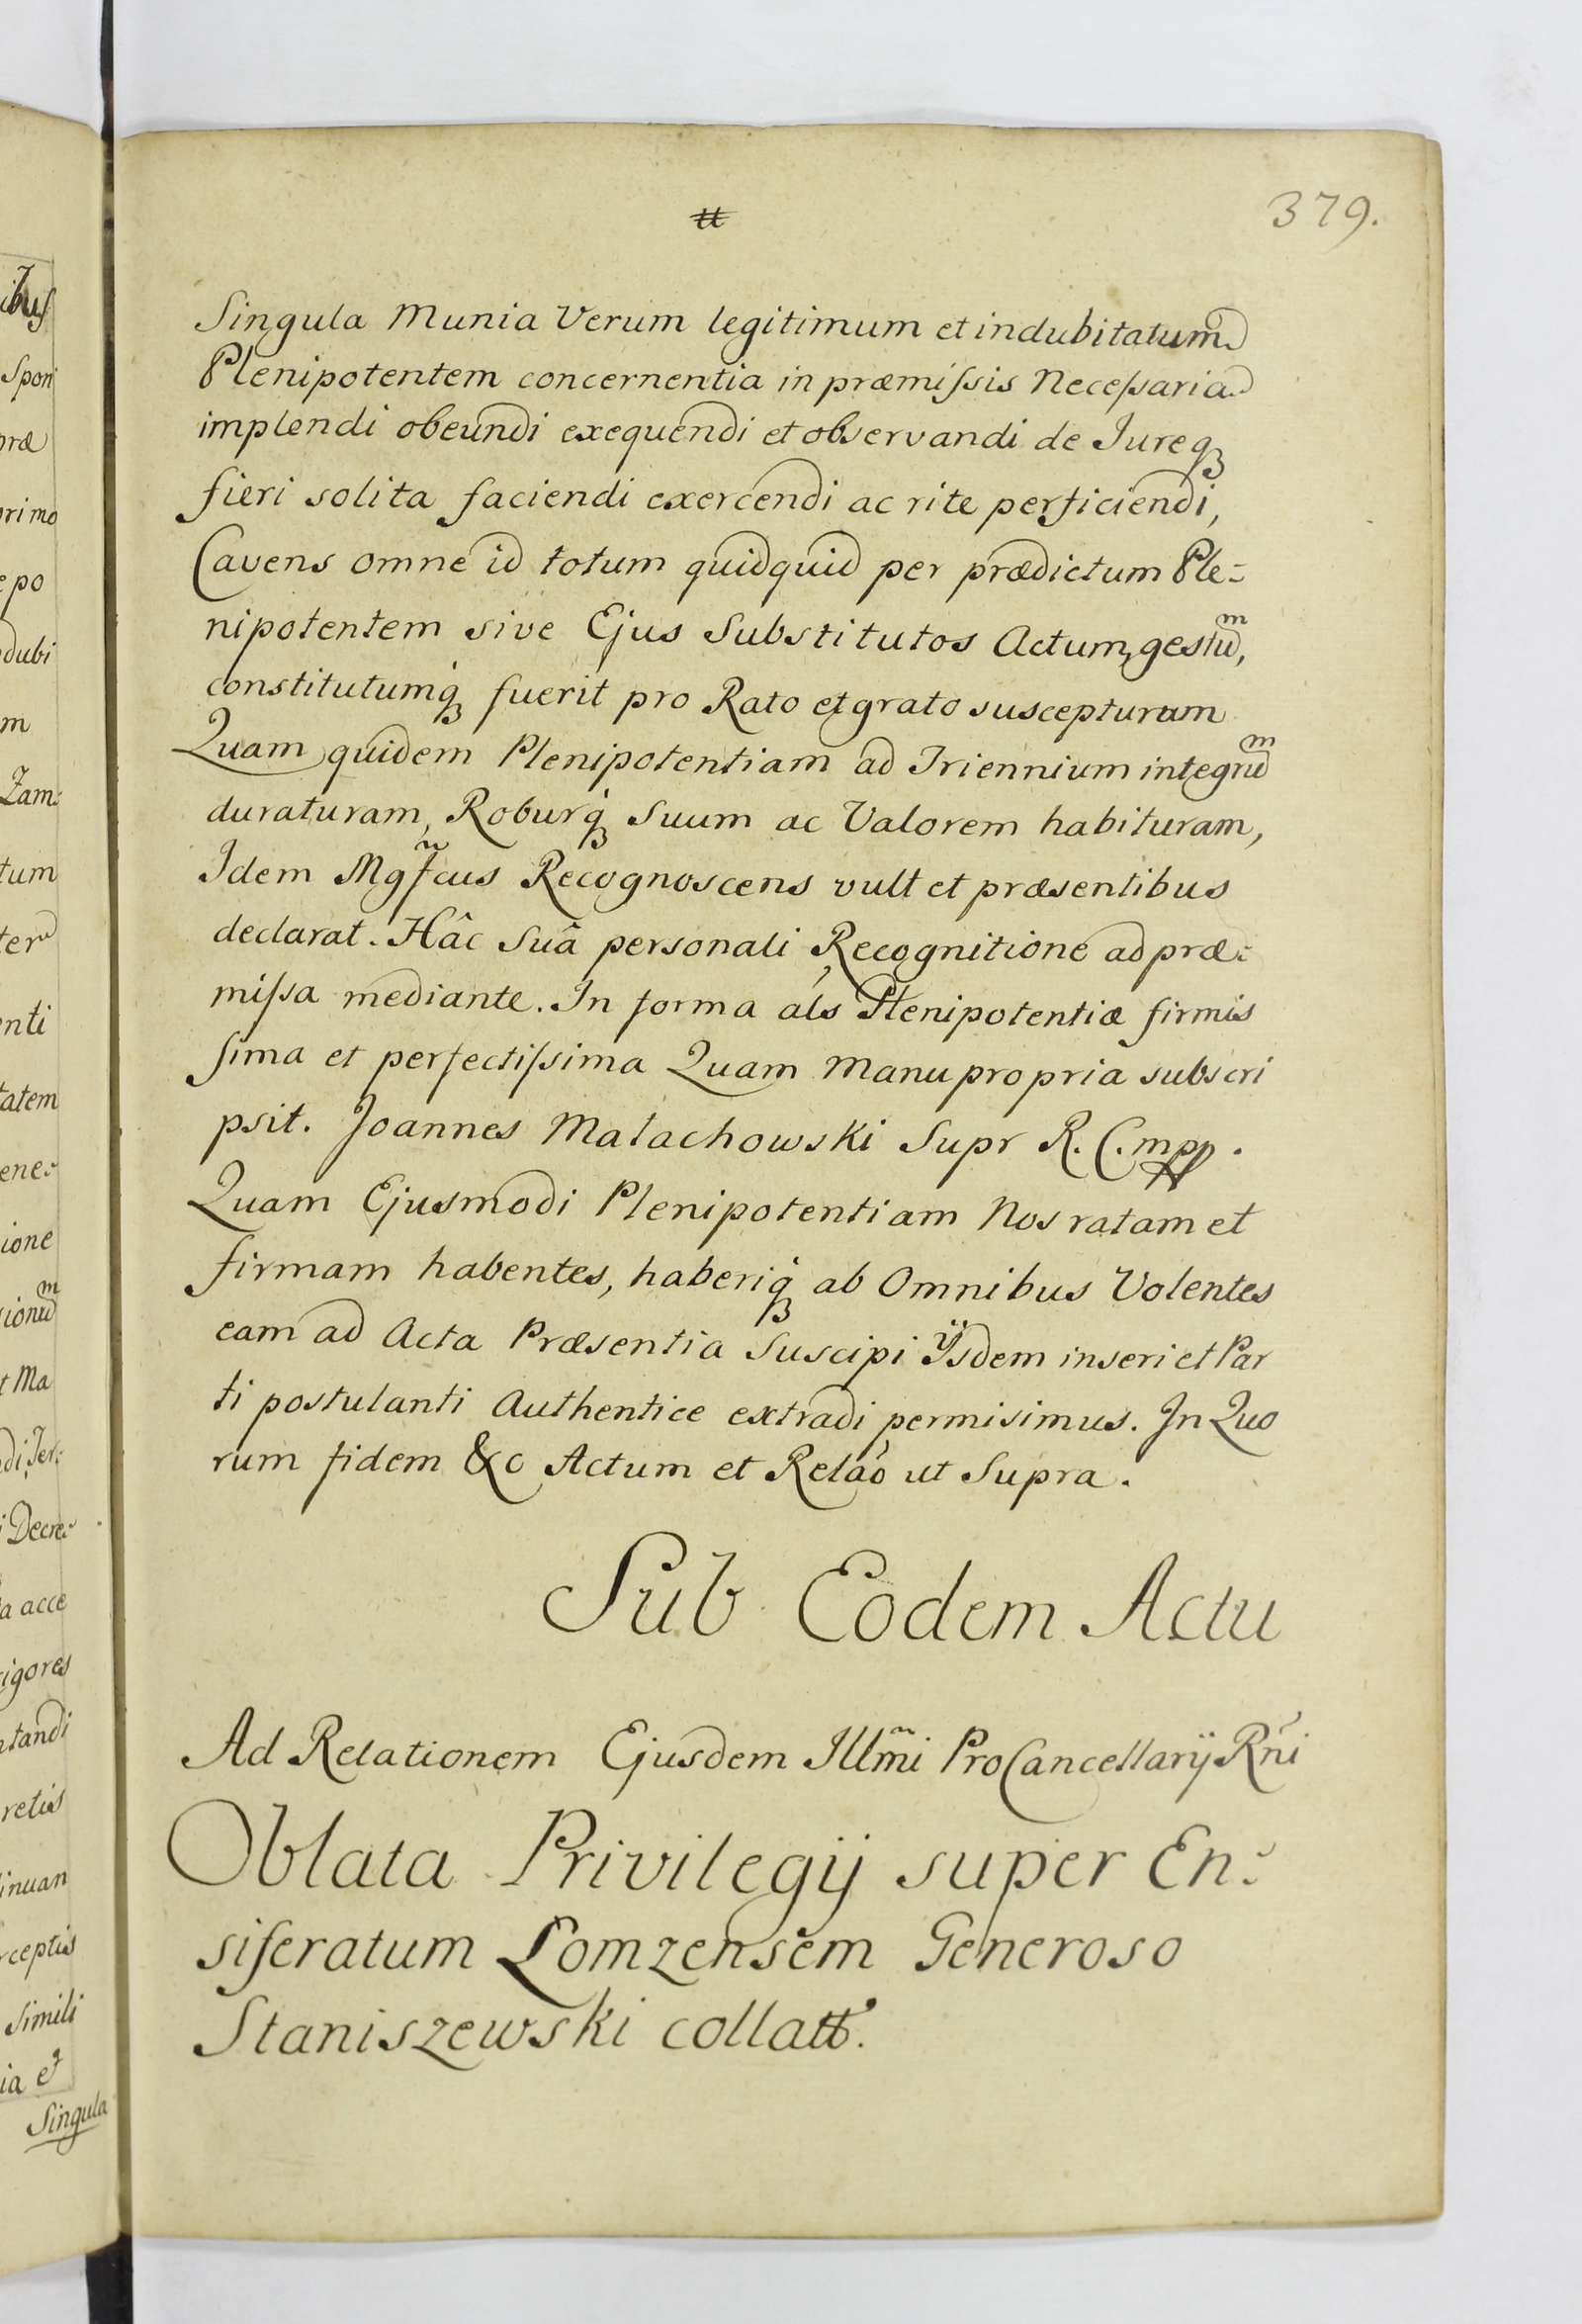 379.
Singula Munia Verum legitimum et indubitatum
Plenipotentem concernentia in præmiſsis Neceſsaria
implendi obeundi exequendi et observandi de Jureq3
fieri solita faciendi exercendi ac rite perficiendi,
Cavens omne id totum quidquid per prædictum Ple=
nipotentem sive Ejus Substitutos Actum, gestum,
constitutumq3 fuerit pro Rato et grato suscepturum
Quam quidem Plenipotentiam ad Triennium integrum
duraturam, Roburq3 Suum ac Valorem habituram,
Idem Mgf̃cus Recognoscens vult et præsentibus
declarat. Hâc Suâ personali Recognitione ad præ=
miſsa mediante. In forma als Plenipotentiæ firmis
sima et perfectiſsima Quam Manu propria subscri
psit. Joannes Małachowski Supr R. C. mpp.
Quam Ejusmodi Plenipotentiam Nos ratam et
firmam habentes, haberiq3 ab Omnibus Volentes
eam ad Acta Præsentia Suscipi Ijsdem inseri et Par
ti postulanti Authentice extradi permisimus. In Quo
rum fidem &c Actum et Relaõ ut Supra.
Sub Eodem Actu
Ad Relationem Ejusdem Illm̃i ProCancellarij Rñi
Oblata Privilegij super En=
siferatum Łomzensem Generoso
Staniszewski collatt.
ibus
Spon
præ
primo
e po
dubi
m
Zam:
tum
ter
nti
tatem
ene=
ione
ionum
t Ma
di, Ter:
i Decre=
a acce
igores
tandi
retis
inuan
ceptis
Simili
ia et
Singula